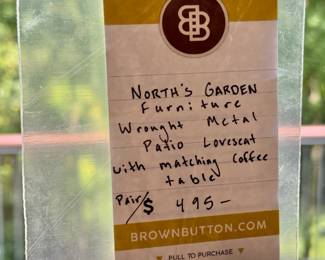 BB
NORTH'S GARDEN
Furniture
Wrought Metal
Patio Loveseat
with matching coffee
table
Pair/$ 495-
BROWNBUTTON.COM
▼ PULL TO PURCHASE ▼